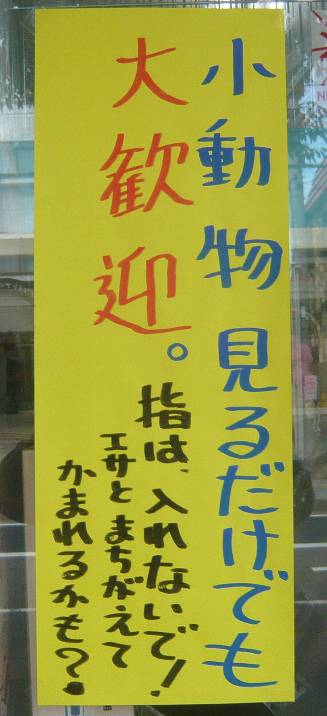 小動物 見るだけでも
大歓迎。
指は、入れないで!
エサと まちがえて
かまれるかも?